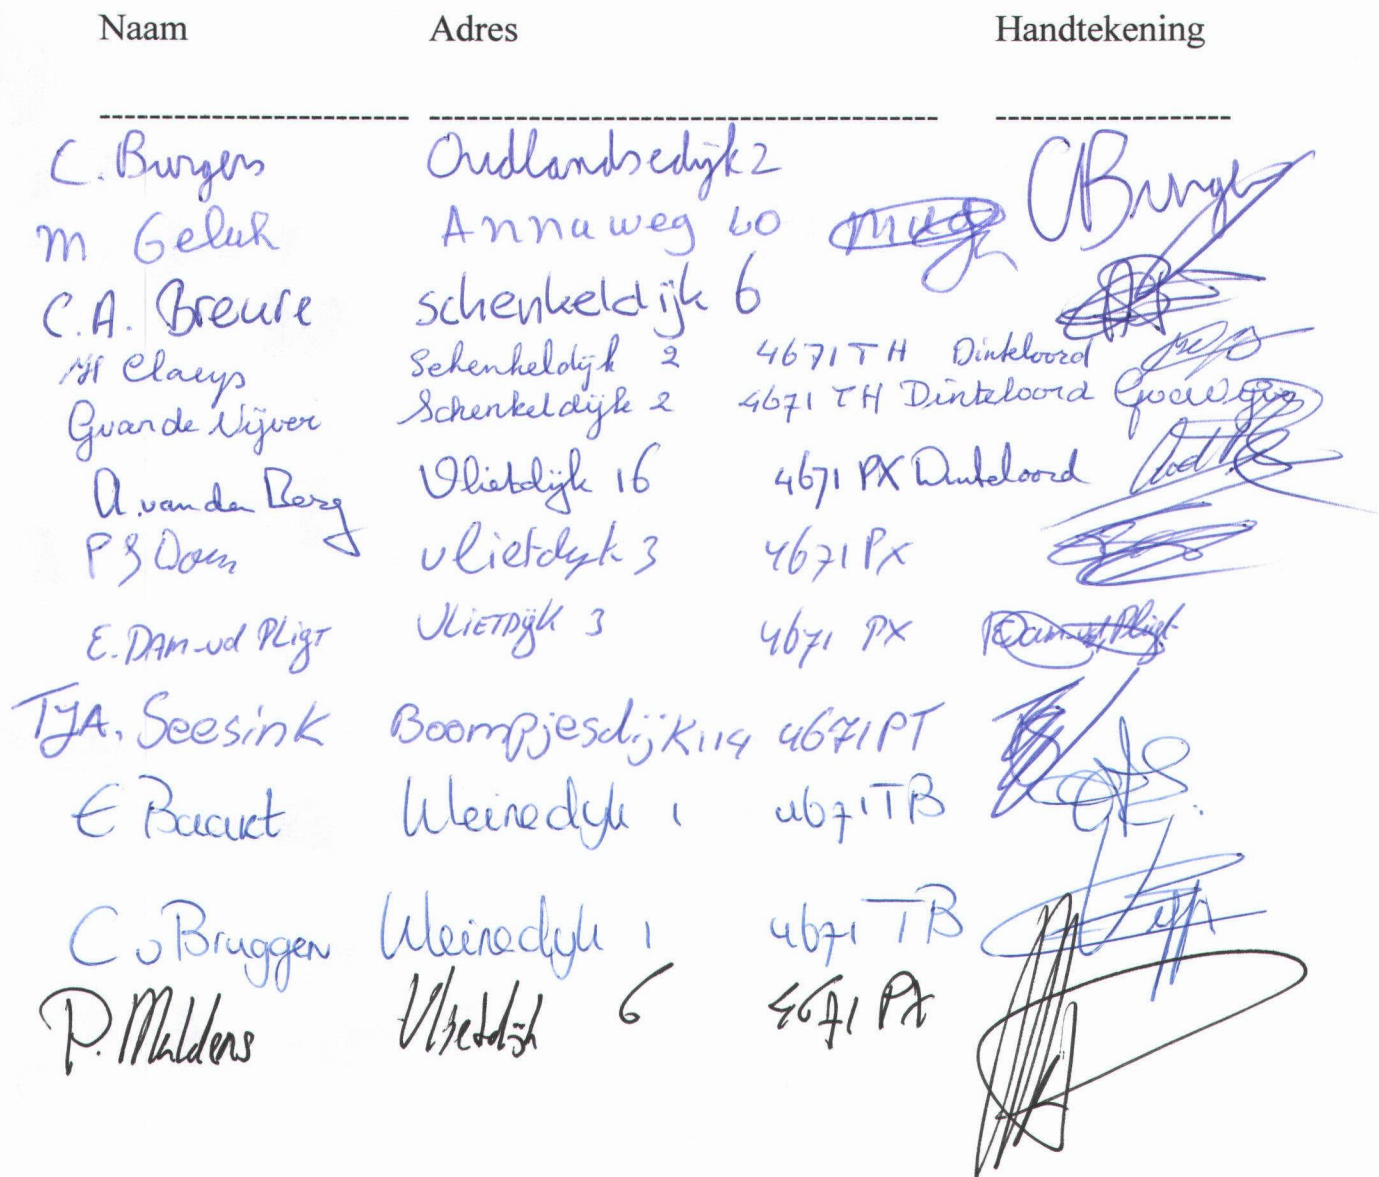 Naam Adres Handtekening
C. Burgers Oudlandsedijk 2 CBurgers
M Geluk Annaweg 60
C.A. Breure schenkeldijk 6
Claeys Schenkeldijk 2 4671 TH Dinteloord
G van de Vijver Schenkeldijk 2 4671 TH Dinteloord
A. van den Berg Vlietdijk 16 4671 PX Dinteloord
P J Dam vlietdyk 3 4671 PX
E. DAM-vd PLigT VLIETDijk 3 4671 PX EDam-vd Pligt
TJA. Seesink Boompjesdijk 114 4671 PT
E Baart Kleinedyk 1 4671 TB
C v Bruggen Kleinedyk 1 4671 TB
P. Vlietdijk 6 4671 PX